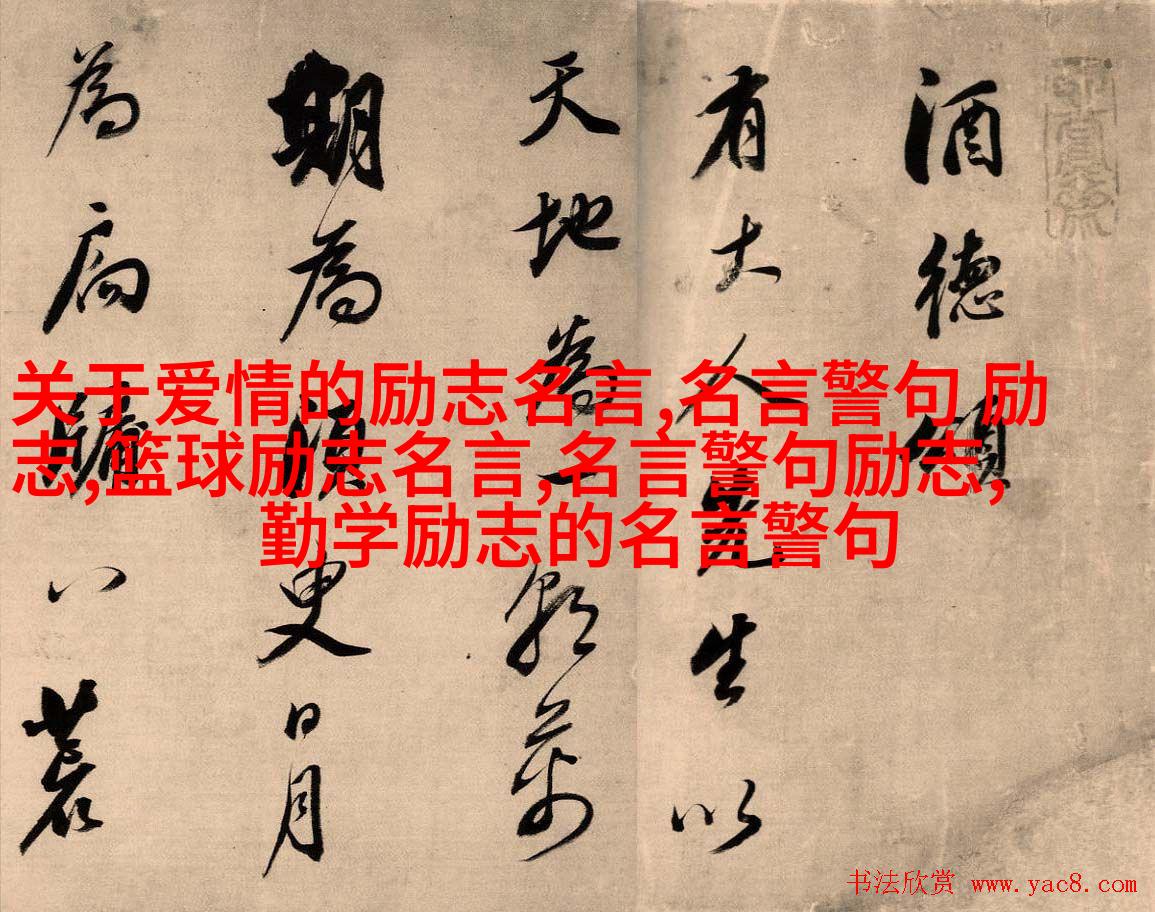 酒德頌
有大人先生以
天地為一朝萬
期為須臾日月
為扃牖八荒
关于爱情的励志名言,名言警句 励
志,篮球励志名言,名言警句励志,
勤学励志的名言警句
书法欣赏 www.yac8.com